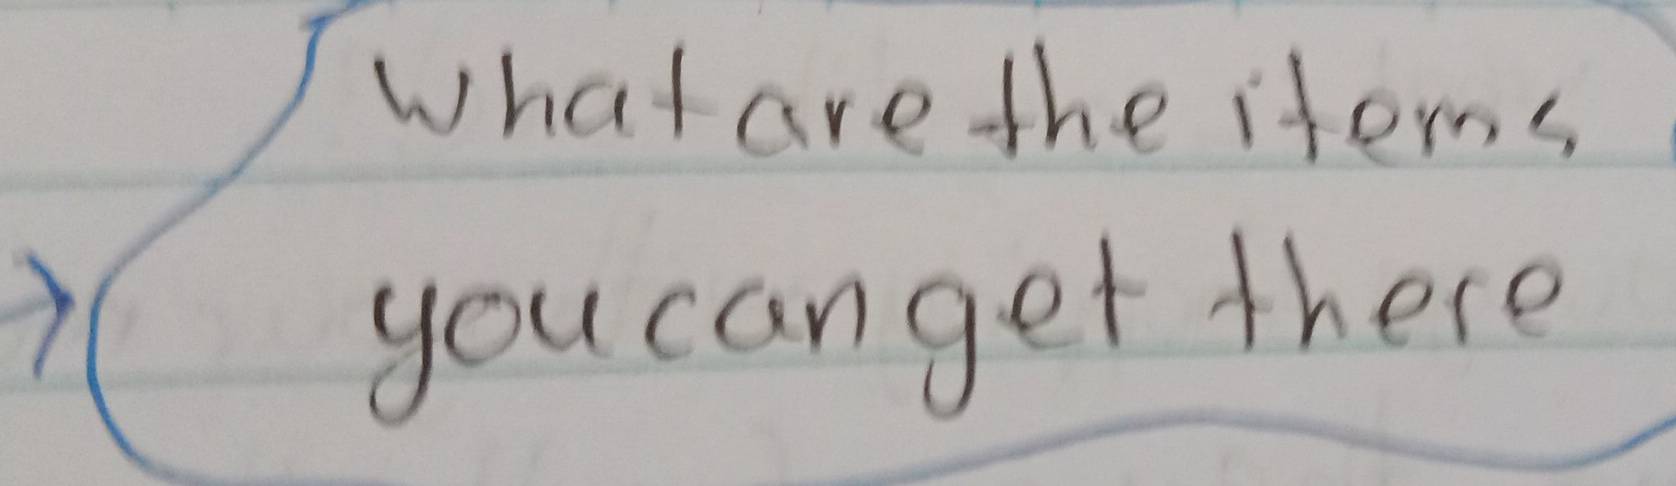 What are the items
you can get there